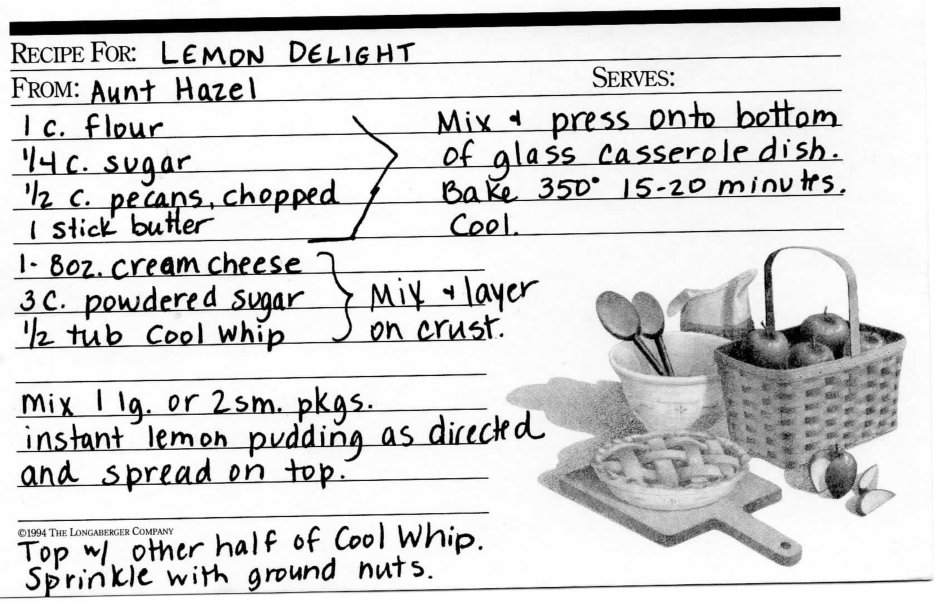 RECIPE FOR: LEMON DELIGHT
FROM: Aunt Hazel
SERVES:
1 c. flour
1/4 c. sugar
1/2 c. pecans, chopped
1 stick butter
Mix & press onto bottom
of glass casserole dish.
Bake 350° 15-20 minutes.
Cool.
1- 8oz. cream cheese
3 C. powdered sugar
1/2 tub Cool Whip
Mix & layer
on crust.
Mix 1 lg. or 2 sm. pkgs.
instant lemon pudding as directed
and spread on top.
©1994 THE LONGABERGER COMPANY
Top w/ other half of Cool Whip.
Sprinkle with ground nuts.